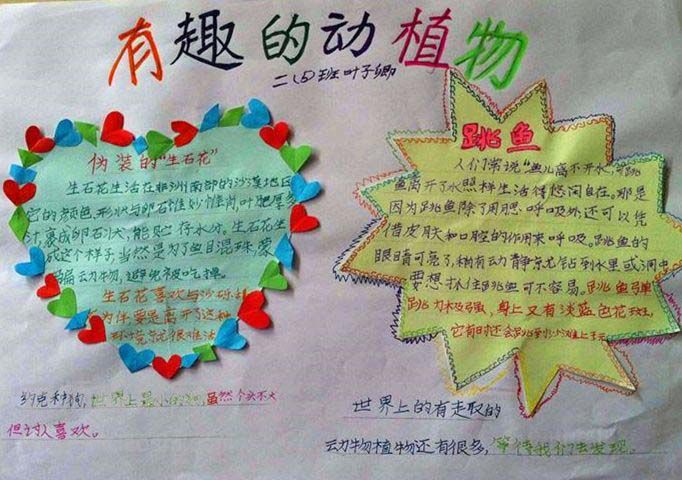 有趣的动植物
二(5)班叶子卿
伪装的"生石花"
生石花生活在非洲南部的沙漠地区
它的颜色、形状与卵石惟妙惟肖,叶肥厚多
汁,裹成卵石状,能贮存水分。生石花生
成这个样子,当然是为了鱼目混珠,蒙
骗动物,避免被吃掉。
生石花喜欢与沙砾
为伴要是离开了这种
环境就很难活
跳鱼
人们常说"鱼儿离不开水,可跳
鱼离开了水照样生活得悠闲自在。那是
因为跳鱼除了用腮呼吸外还可以凭
借皮肤和口腔的作用来呼吸。跳鱼的
眼睛可急了,稍有动静就钻到水里或洞中
要想抓住跳鱼可不容易。跳鱼弹
跳力极强,身上又有淡蓝色花斑,
它有时还会跳到沙滩上玩
约克种狗,世界上最小的狗,虽然个头不大
但讨人喜欢。
世界上的有走取的
动物植物还有很多,等待我们去发现。